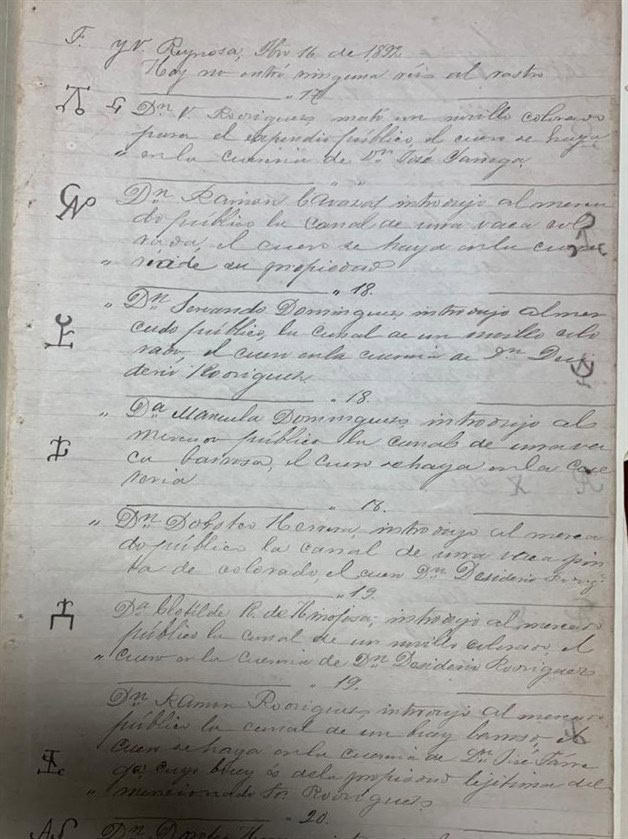 F. y V. Reynosa, Fbro 16 de 1892
Hoy no entró ninguna res al rastro
" 17
Dn. V. Rodriguez mató un novillo colorado
para el expendio público, el cuero se haya
" en la cuereria de Dn. José Tarrega.
Dn. Ramon Cavazos introdujo al merca
do público la canal de una vaca colo
rada, el cuero se haya en la cuere
" ria de su propiedad
" 18.
" Dn. Servando Dominguez introdujo al mer
cado público, la canal de un novillo colo
rado, el cuero en la cuereria de Dn. Desi
derio Rodriguez
" 18.
" Da. Manuela Dominguez introdujo al
mercado público la canal de una va
ca barrosa, el cuero se haya en la cue
reria
" 18.
" Dn. Herrera, introdujo al merca
do público la canal de una vaca pin
ta de colorado, el cuero Dn. Desiderio
" 19.
Da. Clotilde R. de Hinojosa, introdujo al mercado
público la canal de un novillo colorado, el
" cuero en la cuereria de Dn. Desiderio Rodriguez
" 19.
Dn. Ramon Rodriguez, introdujo al mercado
público la canal de un buey barroso, el
cuero se haya en la cuereria de Dn. José Tarre
ga, cuyo buey és de la propiedad lejitima del
" mencionado Sr. Rodriguez
" 20.